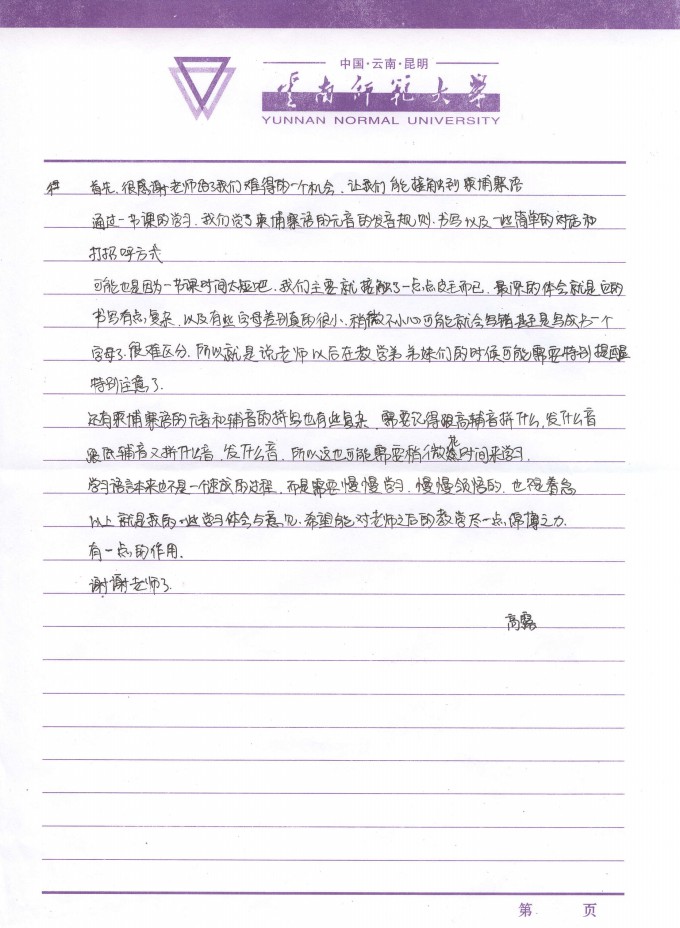 中国·云南·昆明
云南师范大学
YUNNAN NORMAL UNIVERSITY
首先,很感谢老师给了我们难得的一个机会,让我们能接触到柬埔寨语
通过一节课的学习,我们学了柬埔寨语的元音的发音规则,书写以及一些简单的对话和
打招呼方式
可能也是因为一节课时间太短吧,我们主要就接触了一点点皮毛而已,最深的体会就是它的
书写有点复杂,以及有些字母差别真的很小,稍微不小心可能就会写错甚至是写成另一个
字母了,很难区分,所以就是说老师以后在教学弟弟妹们的时候可能需要特别提醒
特别注意了.
还有柬埔寨语的元音和辅音的拼写也有些复杂,需要记得跟高辅音拼什么,发什么音
跟低辅音又拼什么音,发什么音,所以这也可能需要稍微花时间来学习.
学习语言本来也不是一个速成的过程,而是需要慢慢学习,慢慢领悟的,也不能着急
以上就是我的一些学习体会与意见,希望能对老师之后的教学尽一点绵薄之力.
有一点的作用.
谢谢老师了.
高露
第 页